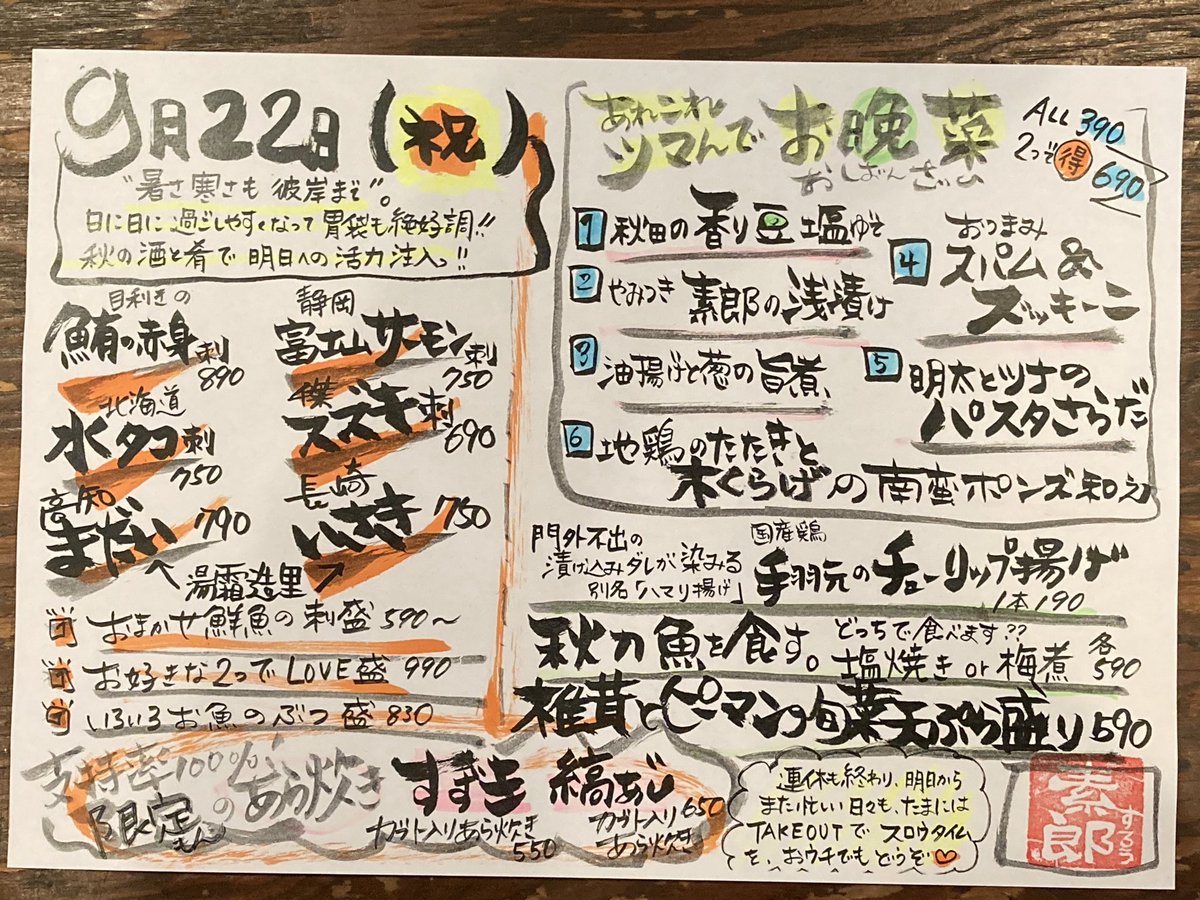 9月22日(祝)
"暑さ寒さも彼岸まで"。
日に日に過ごしやすくなって胃袋も絶好調!!
秋の酒と肴で明日への活力注入!!
目利きの
鮪の赤身刺
890
静岡
富士山サーモン刺
750
北海道
水タコ刺
750
スズキ刺
690
高知
まだい 790
長崎
いさき 750
湯霜造里
おまかせ鮮魚の刺盛 590~
お好きな2つでLOVE盛 990
いろいろお魚のぶつ盛 830
支持率100%!
限定のあら炊き
すずき
カブト入りあら炊き
550
縞あじ
カブト入り 650
あら炊き
あれこれ
ツマんで お晩菜
おしばんざい
ALL 390
2つで得 690
1 秋田の香り豆塩ゆで
2 やみつき 素郎の浅漬け
3 油揚げと葱の旨煮
4 おつまみ
スパム&
ズッキーニ
5 明太とツナの
パスタさらだ
6 地鶏のたたきと
木くらげの南蛮ポンズ和え
門外不出の
漬け込みダレが染みる
別名「ハマり揚げ」
国産鶏
手羽元のチューリップ揚げ
1本190
秋刀魚を食す。
どっちで食べます??
塩焼き or 梅煮
各590
椎茸とピーマンの旬菜天ぷら盛り 590
連休も終わり、明日から
また忙しい日々も、たまには
TAKEOUTで スロウタイム
を、おウチでもどうぞ
素郎
するう